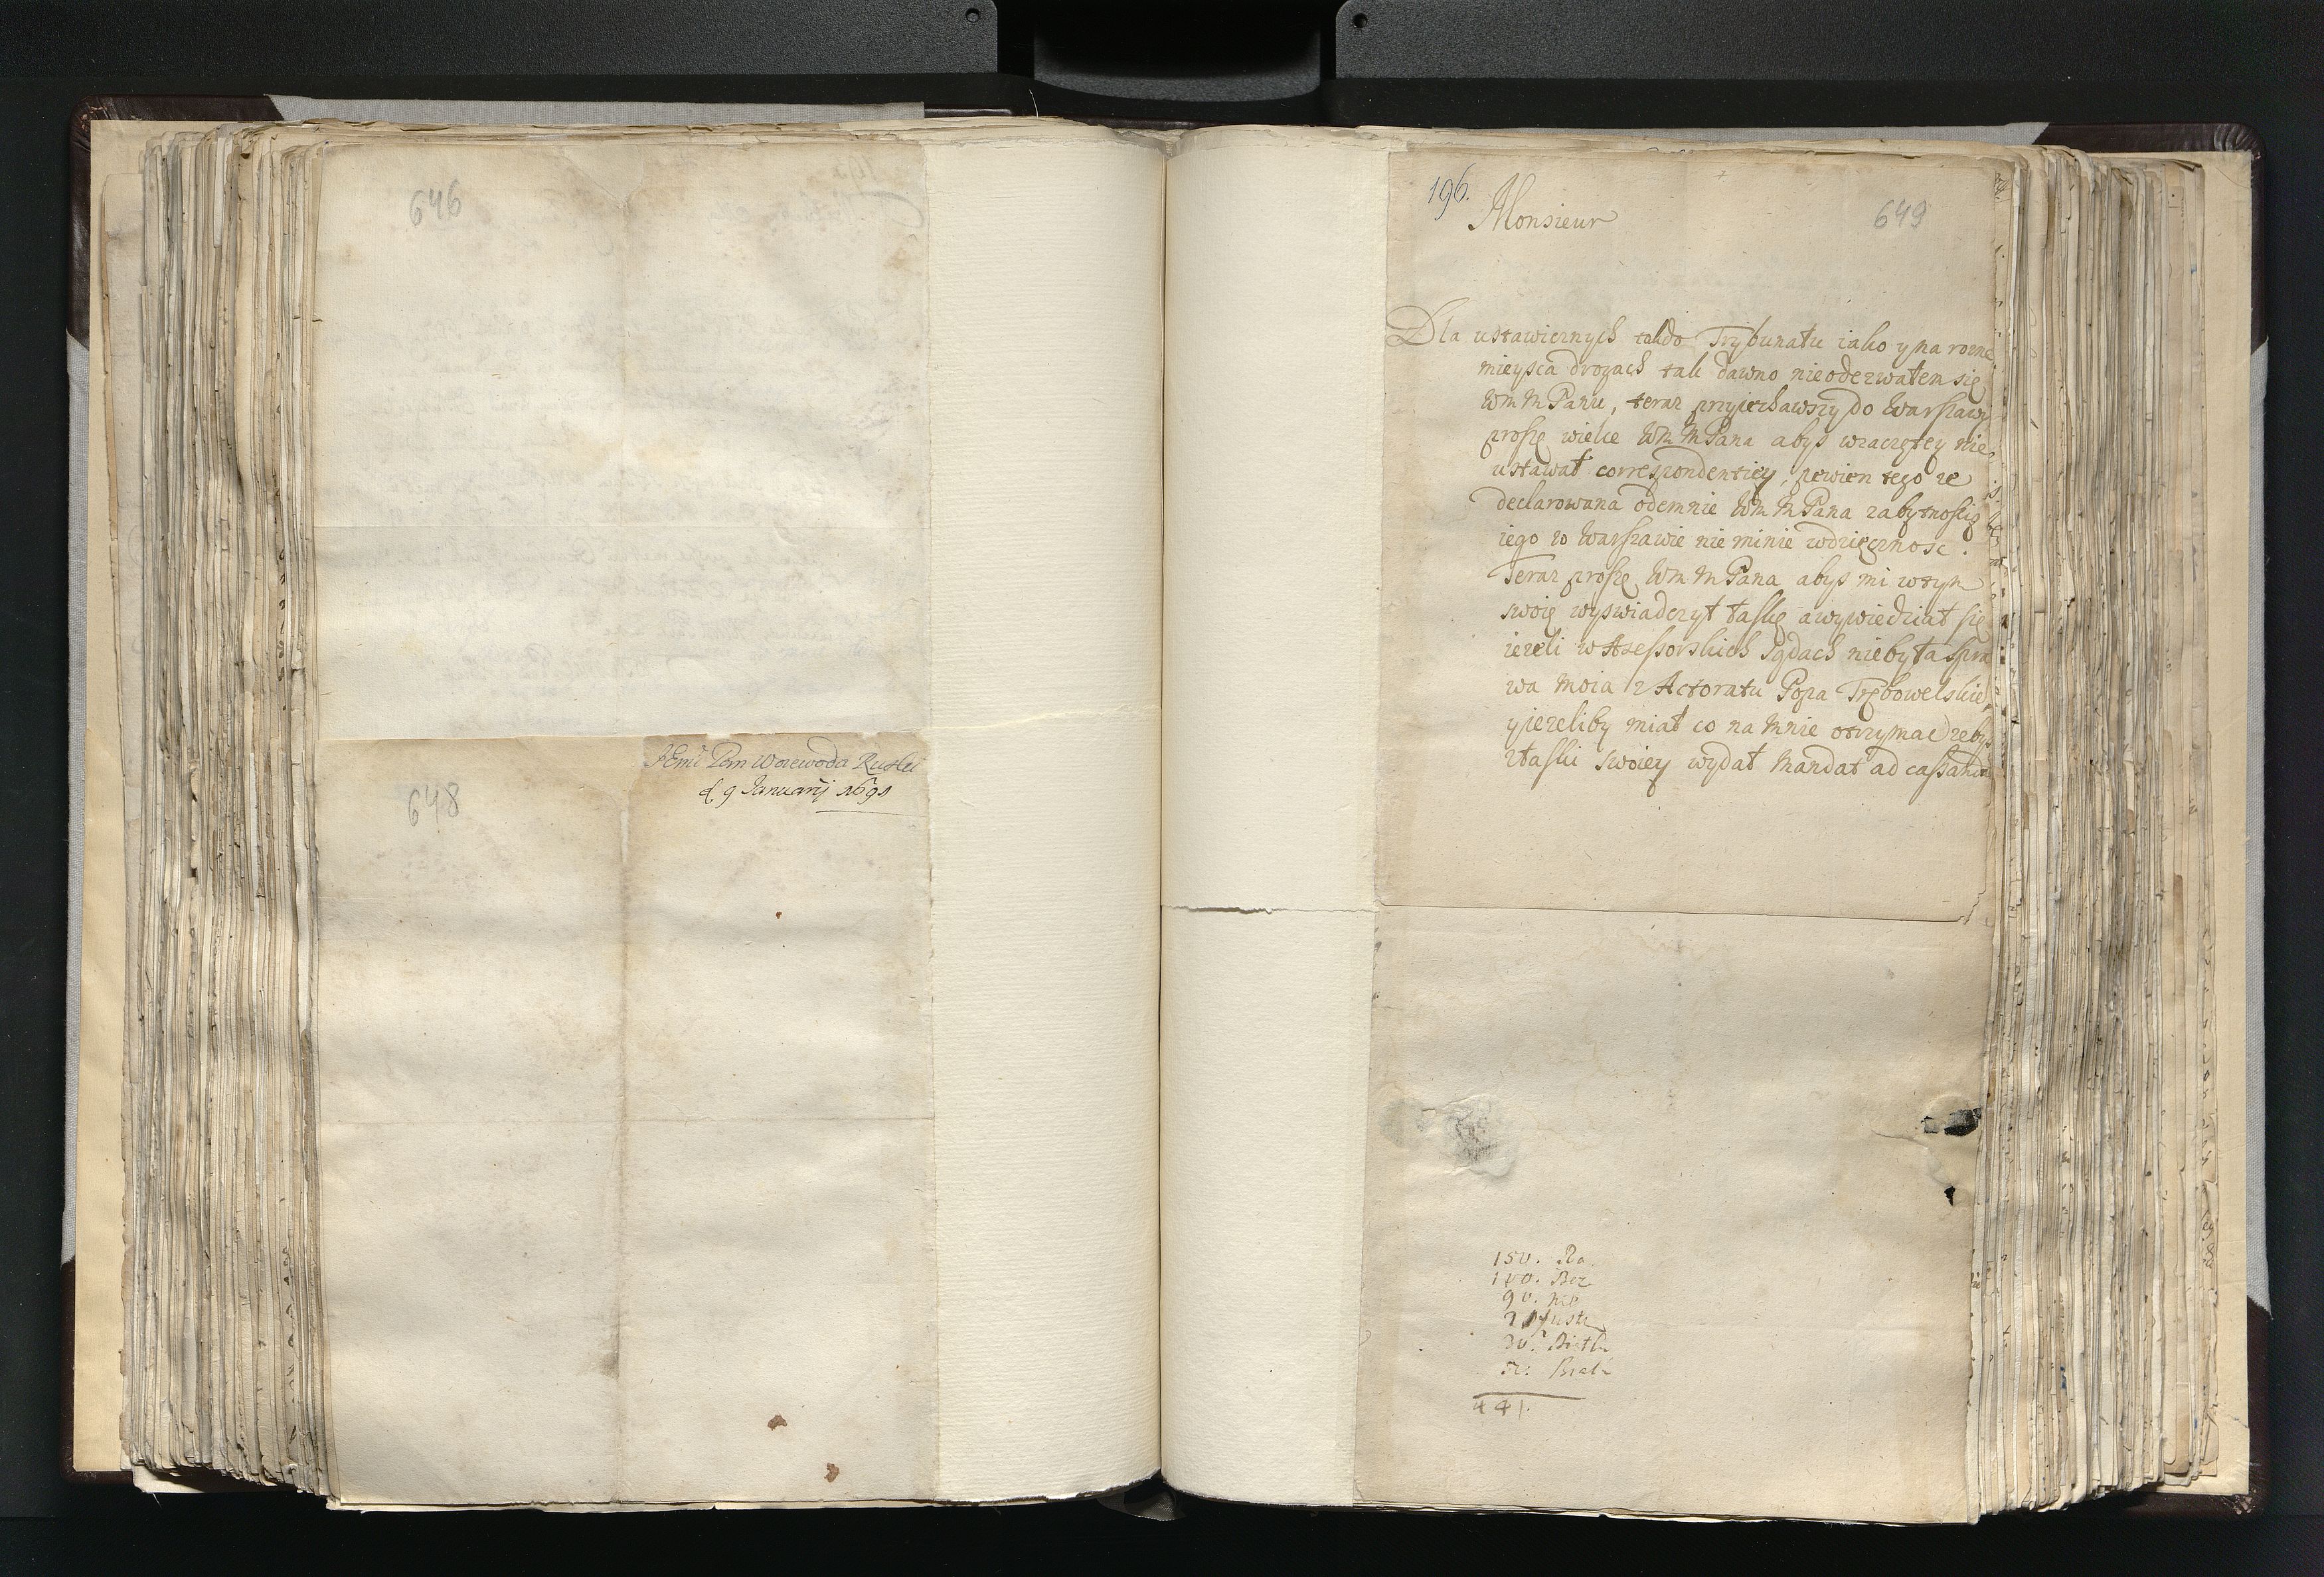 646
JEmć Pan Woiewoda Ruski
d 9 Januarij 1691
648
196.
Monsieur
649
Dla ustawicznych takdo Trybunału iako y na rozne
mieysca drogach tak dawno nieodezwałem się
Wm M Panu, teraz przyiechawszy do Warszawy
proszę wielce Wm M Pana abyś wzaczętey nie
ustawał correspondentiey, pewien tego ze
declarowana odemnie Wm M Pana zabytnością
iego w Warszawie nie minie wdzięcznosc.
Teraz proszę Wm M Pana abyś mi wtym
swoię wyswiadczył łaskę a wywiedział się
iezeli w Asessorskich Sądach niebyła spra
wa moia z Actoratu Popa Trębowelskie
y jezeliby miał co na mnie otrzymac zebys
złaski swoiey wydał Mandat ad cassand
150. Ra
100. Bez
90.
30.
441.